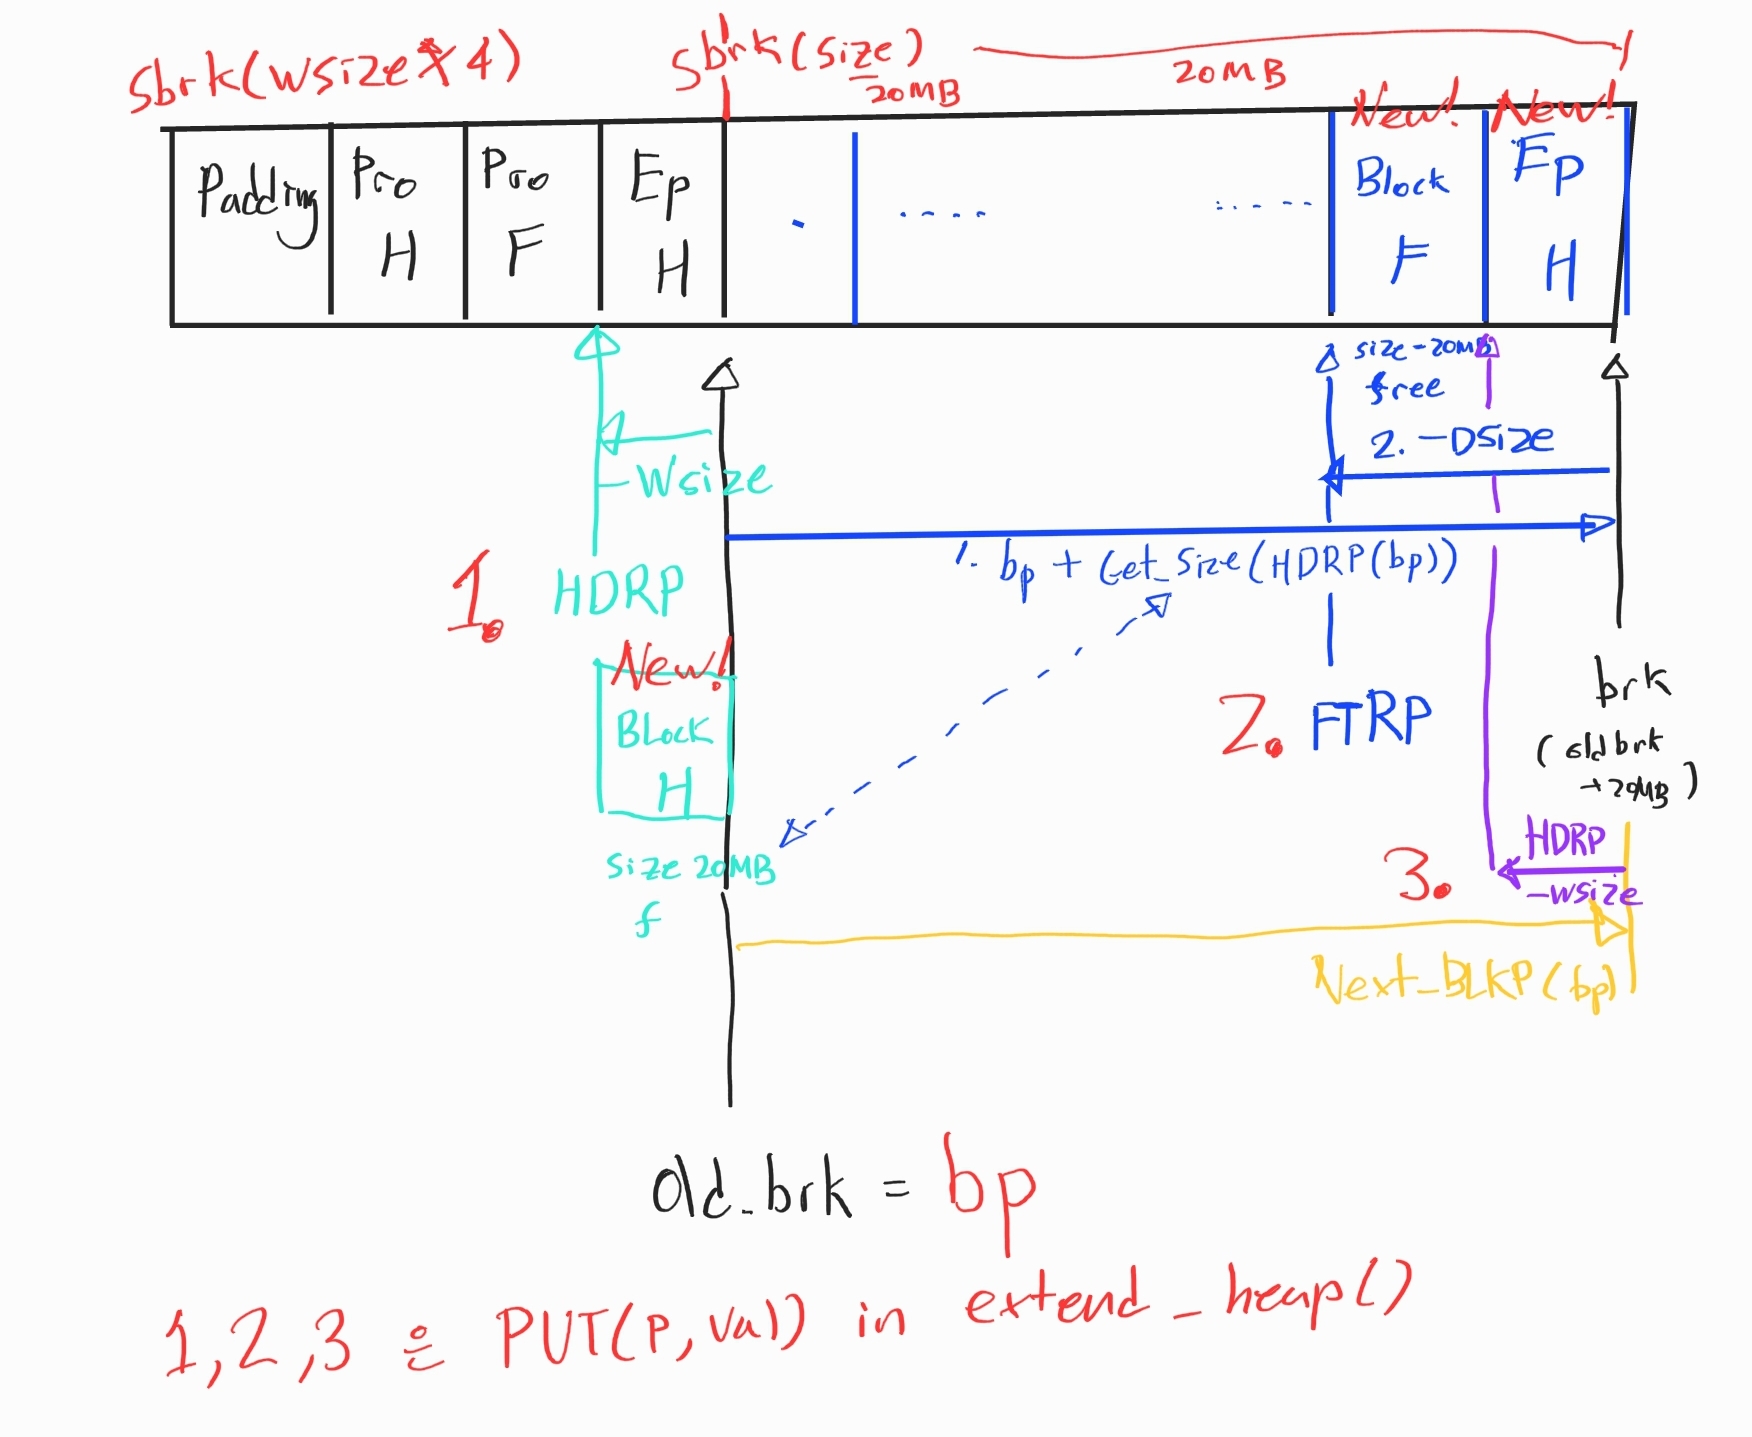 Sbrk(wsize*4)
Sbrk(size)
20MB
20MB
New! New!
Padding
Pro
H
Pro
F
Ep
H
. .... .....
Block
F
Ep
H
size-20MB
free
-Wsize
2. -DSize
1. bp + Get_Size(HDRP(bp))
1. HDRP
New!
BLock
H
Size 20MB
f
2. FTRP
brk
(oldbrk
+20MB)
3. HDRP
-wsize
Next_BLKP(bp)
old_brk = bp
1,2,3 은 PUT(p,val) in extend_heap()